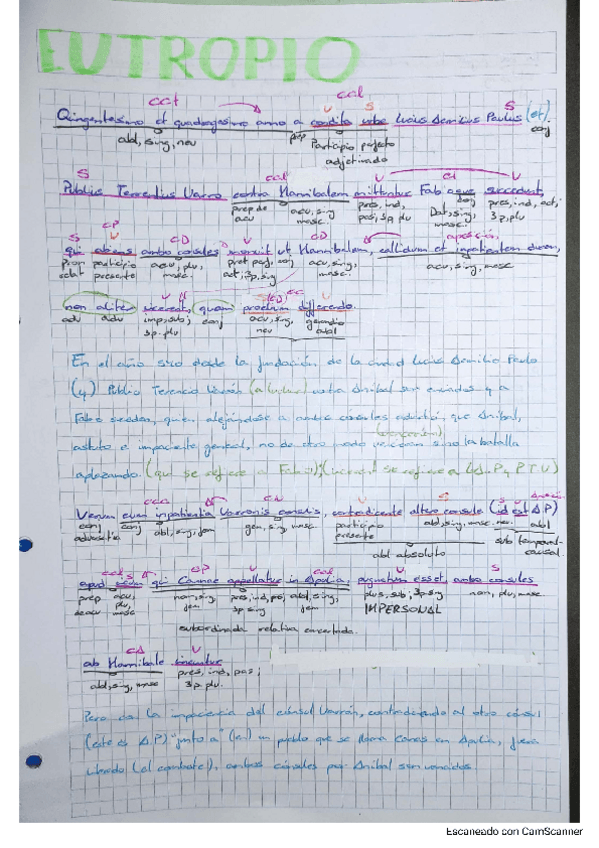 EUTROPIO
cct cal
V S S
Qingentesimo et quadragesimo anno a condita urbe Lucius Aemilius Paulus (et).
abl, sing, neu prep conj
Participio perfecto
adjetivado
S cal V CI V
Publius Terrentius Varro contra Hannibalem mittuntur Fabioque succedunt,
prep de acu, sing pres, ind, Dat, sing, conj pres, ind, act,
acu masc. pas, 3p, plu masc. 3p, plu
S CP V CD V CD aposición
qui abiens ambo consules monuit ut Hannibalem, callidum et inpatientem ducem,
Pron participio acu, plu, pret perf, conj acu, sing, acu, sing, masc
relat presente masc. act, 3p, sing masc.
V CD CC
non aliter vincerent, quam proelium differendo.
adv adv imp, sub, conj acu, sing, gerundio
3p. plu neu abl
En el año 540 desde la fundación de la ciudad Lucio Aemilio Paulo
(y) Publio Terencio Varrón contra Anibal son enviados y a
Fabio suceden, quien alejándose a ambos cónsules advirtió, que Anibal,
astuto e impaciente general, no de otro modo vencieran sino la batalla
aplazando. (qui se refiere a Fabio); (vincerent se refiere a L.A.P y P.T.V)
CN V S
Verum cum inpatientia Varronis consulis, contradicente altero consule (id est A.P)
conj conj abl, sing, fem gen, sing, masc. participio abl, sing, masc. neu. abl
presente sub temporal-
abl absoluto causal.
CP V cal V S
apud vicum qui Cannae appellatur in Apulia, pugnatum esset, ambo consules
prep acu, nom, sing, pres, ind, pas, abl, sing, plus, sub, 3p, sing nom, plu, masc
de acu masc fem 3p sing fem IMPERSONAL
subordinada relativa encartada.
CA V
ab Hannibale vincuntur
abl, sing, masc pres, ind, pas;
3p. plu.
Pero con la impaciencia del cónsul Varrón, contradiciendo al otro cónsul
(este es A.P) "junto a" (en) un pueblo que se llama Canas en Apulia, fuera
(el combate), ambos cónsules por Anibal son vencidos.
Escaneado con CamScanner